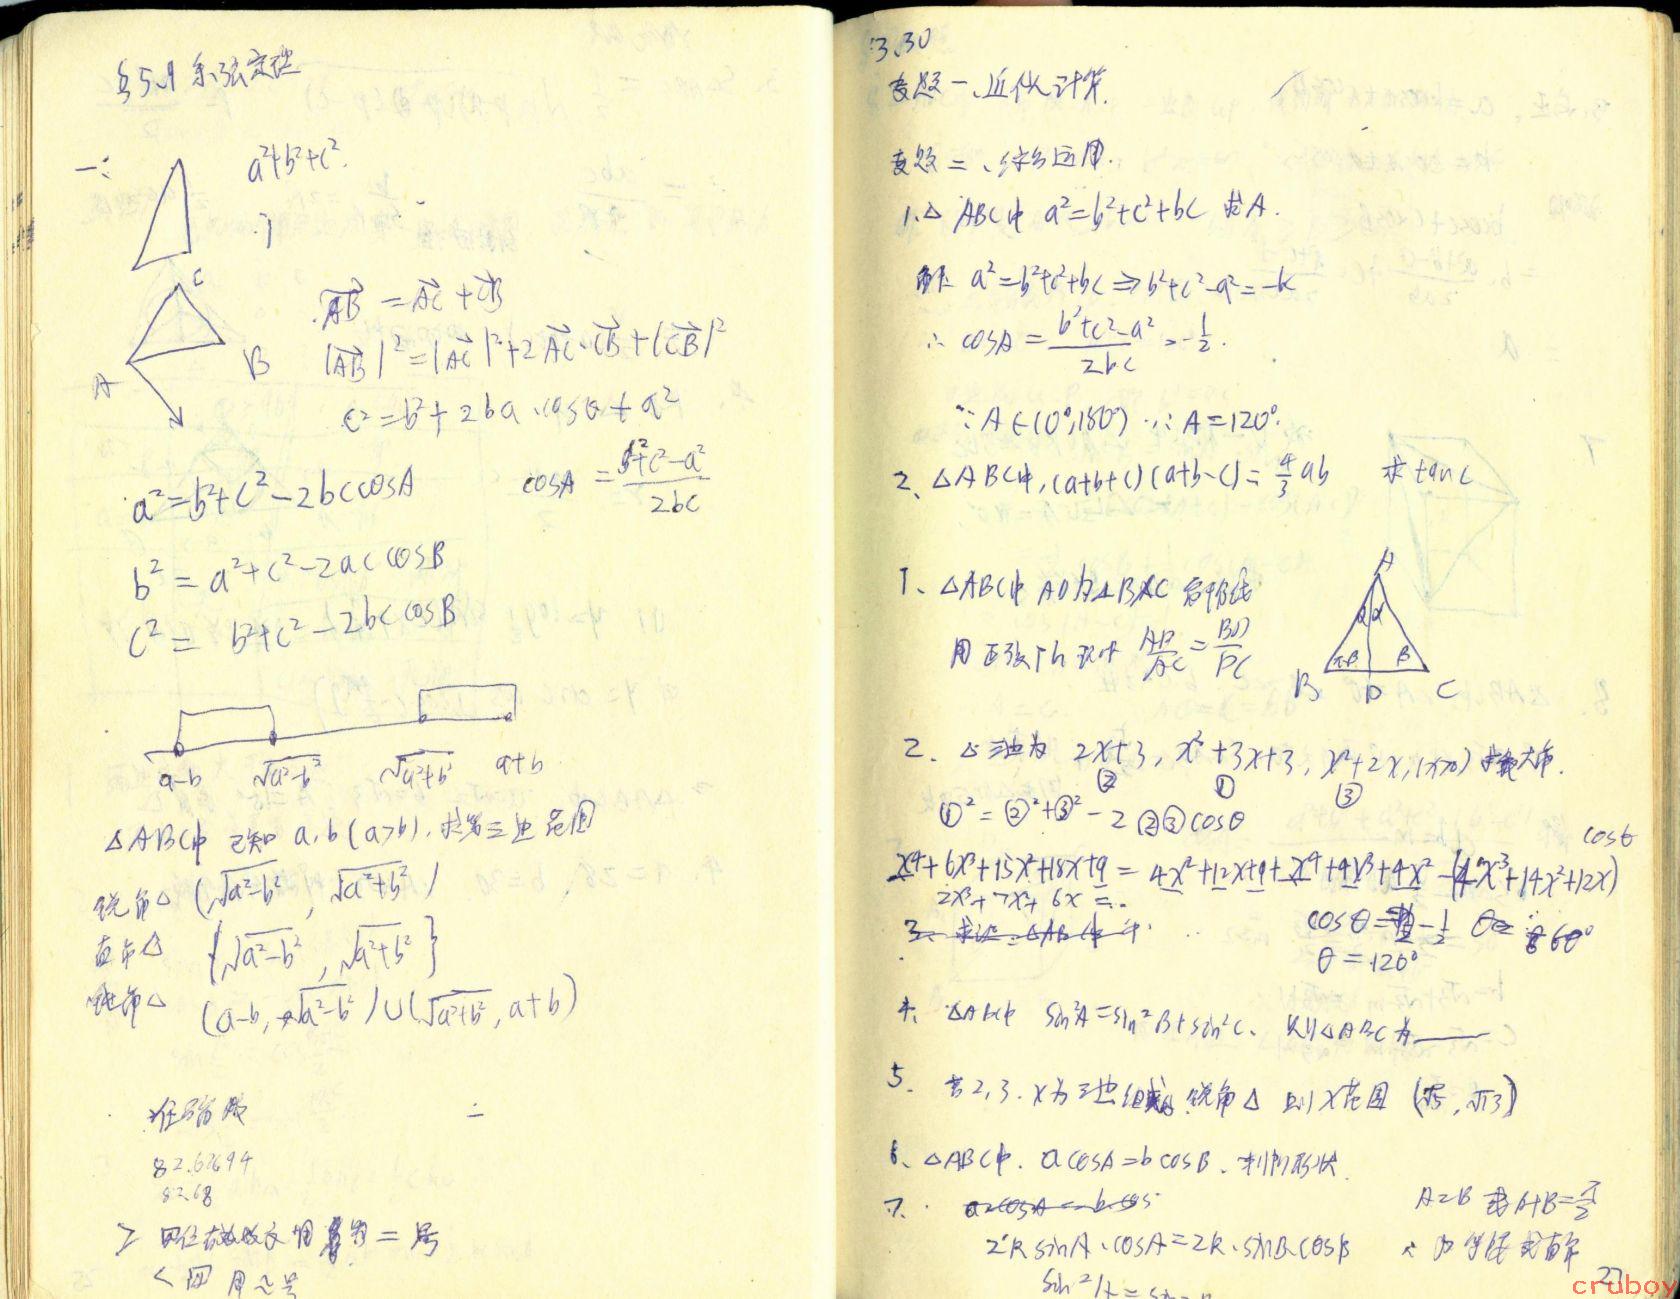 §5.9 余弦定理
一:
a²+b²+c².
C
A
B
AB = AC + CB
|AB|² = |AC|² + 2AC·CB + |CB|²
c² = b² + 2ba·cosθ + a²
a² = b²+c² - 2bc cosA
cosA = (b²+c²-a²)/2bc
b² = a²+c² - 2ac cosB
c² = b²+c² - 2bc cosB
a-b √a²-b² √a²+b² a+b
△ABC中 已知 a,b (a>b), 求第三边范围
锐角△ (√a²-b², √a²+b²)
直角△ {√a²-b², √a²+b²}
钝角△ (a-b, √a²-b²)∪(√a²+b², a+b)
准确
二
82.67694
82.68
用 = 号
< 四 用 号
3.30
专题一、近似计算.
专题二、综合运用.
1. △ABC中 a²=b²+c²+bc 求A.
解 a²=b²+c²+bc ⇒ b²+c²-a²=-bc
∴ cosA = (b²+c²-a²)/2bc = -1/2.
∵ A∈(0°,180°) ∴ A=120°.
2、△ABC中, (a+b+c)(a+b-c) = 4/3 ab 求 tanC
1、△ABC中 AD为∠BAC 角平分线
用正弦 AB/AC = BD/DC
A
α α
π-β β
B D C
2. △三边为 2x+3, x²+3x+3, x²+2x, (x>0) 求最大角.
② ① ③
①² = ②²+③² - 2②③cosθ
cosθ
x⁴+6x³+15x²+18x+9 = 4x²+12x+9+x⁴+4x³+4x² - (4x³+14x²+12x)
2x³+7x²+6x =
3. 求证:△ABC中
cosθ = -1/2 θ= 60°
θ = 120°
4. △ABC中 sin²A=sin²B+sin²C. 则△ABC为____
5. 若2,3,x为三边组成的锐角△ 则x范围 (√5, √13)
6、△ABC中. acosA=bcosB. 判断形状
7. a=cosA=b cos
A=B 或 A+B=π/2
2R sinA·cosA=2R·sinB·cosB
∴ 为等腰或直角
27
cruboy